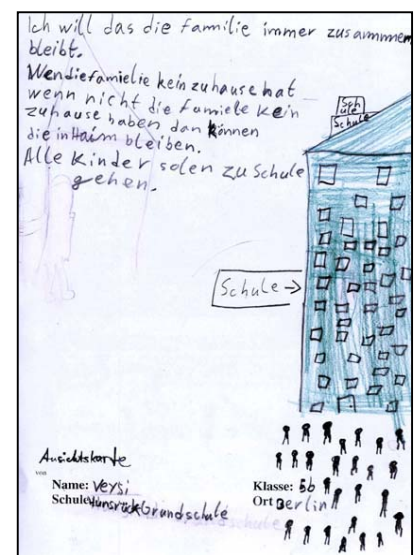 Ich will das die familie immer zusammmen
bleibt.
Wen die familie kein zuhause hat
wenn nicht die famiele kein
zuhause haben dan können
die in Haim bleiben.
Alle Kinder solen zu Schule
gehen.
Sph
Schule
Schule →
Ansichtskarte
von
Name: Versi
Schule Hunsrück Grundschule
Klasse: 5b
Ort Berlin